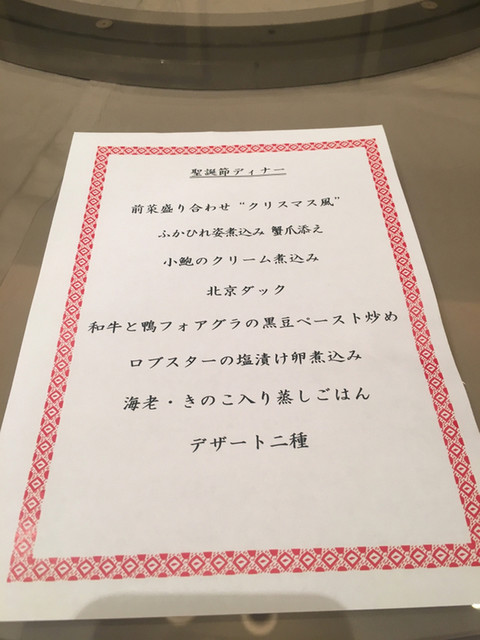 聖誕節ディナー
前菜盛り合わせ “クリスマス風”
ふかひれ姿煮込み 蟹爪添え
小鮑のクリーム煮込み
北京ダック
和牛と鴨フォアグラの黒豆ペースト炒め
ロブスターの塩漬け卵煮込み
海老・きのこ入り蒸しごはん
デザート二種